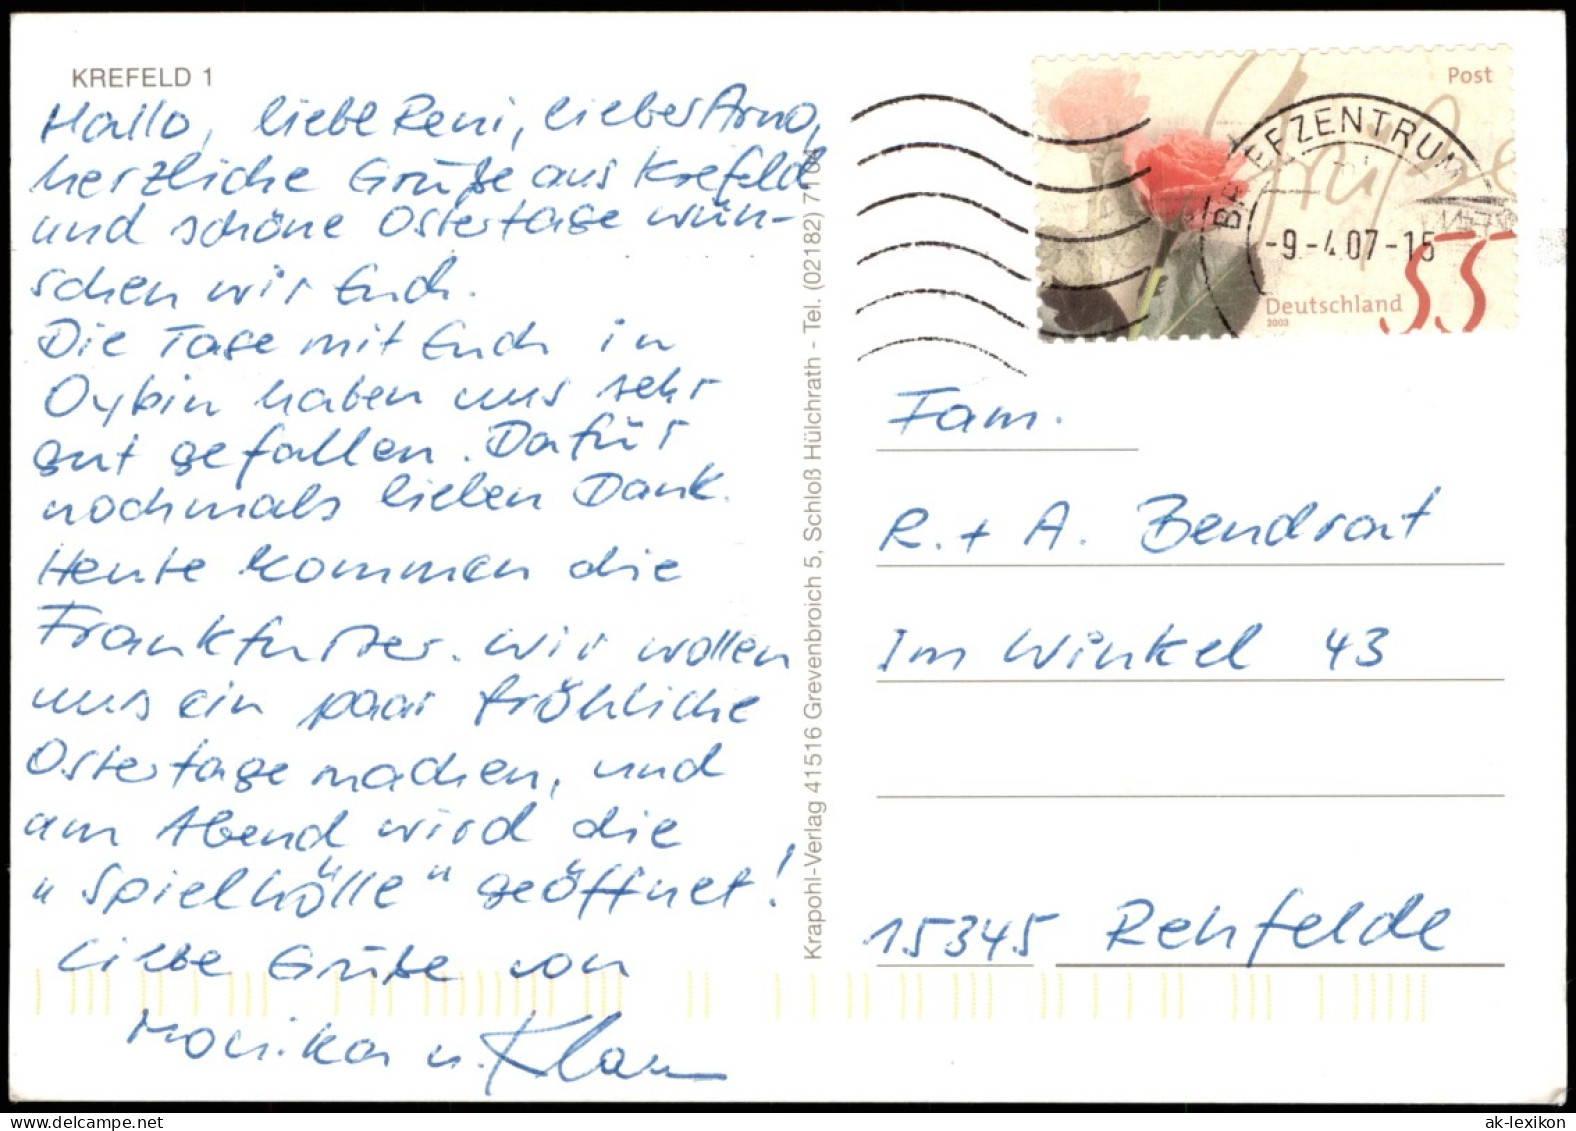 KREFELD 1
Hallo, liebe Reni, lieber Arno,
herzliche Grüße aus Krefeld
und schöne Ostertage wün-
schen wir Euch.
Die Tage mit Euch in
Oybin haben uns sehr
gut gefallen. Dafür
nochmals lieben Dank.
Heute kommen die
Frankfurter. Wir wollen
uns ein paar fröhliche
Ostertage machen, und
am Abend wird die
"Spielhölle" geöffnet!
Liebe Grüße von
Monika u. Klaus
Krapohl-Verlag 41516 Grevenbroich 5, Schloß Hülchrath - Tel. (02182) 7164
Post
Grüße
BRIEFZENTRUM
-9.-4.07-15
Deutschland
2003
55
Fam.
R. + A. Bendrat
Im Winkel 43
15345 Rehfelde
ak-lexikon.com